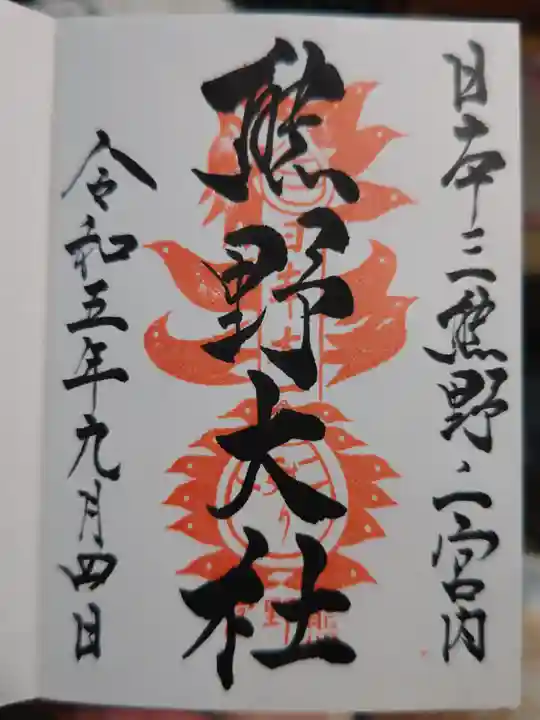 日本三熊野・二宮内
熊野大社
令和五年九月四日